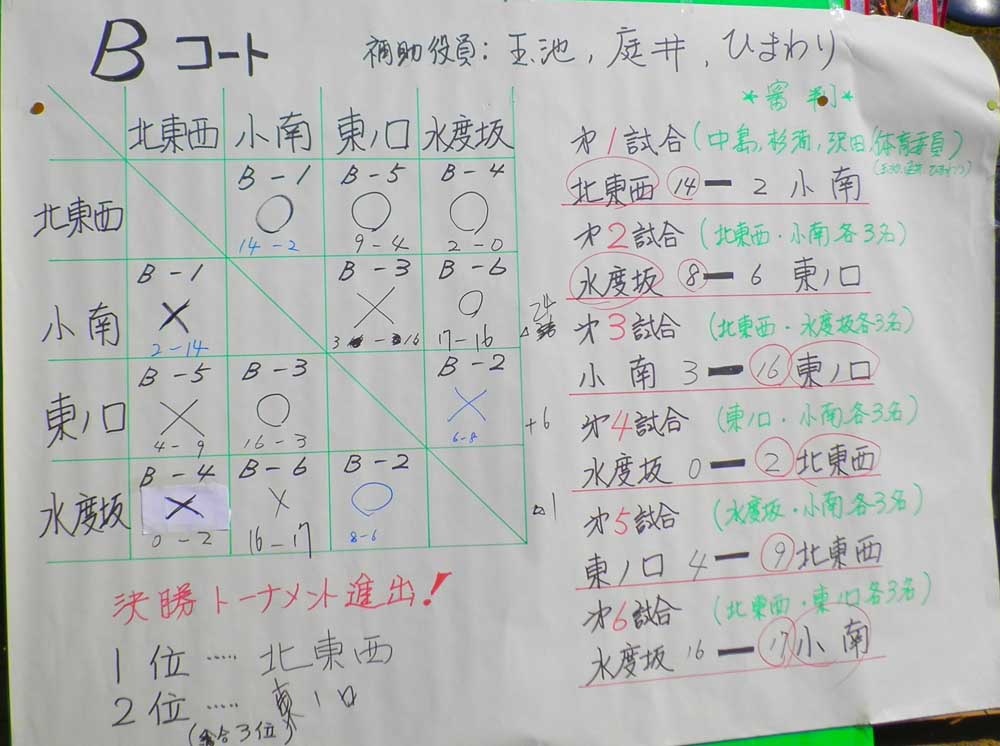 B コート 補助役員: 玉池, 庭井, ひまわり
北東西 小南 東ノ口 水度坂
北東西 B-1 ○ 14-2 B-5 ○ 9-4 B-4 ○ 2-0
小南 B-1 × 2-14 B-3 × 3 - 16 B-6 ○ 17-16 △ 24
東ノ口 B-5 × 4-9 B-3 ○ 16-3 B-2 × 6-8 +6
水度坂 B-4 × 0-2 B-6 × 16-17 B-2 ○ 8-6 △1
決勝トーナメント進出!
1位 ..... 北東西
2位 ..... 東ノ口
(総合3位)
*審判*
才1試合(中島, 杉浦, 沢田/体育委員)
北東西 14 ー 2 小南
才2試合 (北東西・小南各3名)
水度坂 8 ー 6 東ノ口
才3試合 (北東西・水度坂各3名)
小南 3 ー 16 東ノ口
才4試合 (東ノ口・小南各3名)
水度坂 0 ー 2 北東西
才5試合 (水度坂・小南各3名)
東ノ口 4 ー 9 北東西
才6試合 (北東西・東ノ口各3名)
水度坂 16 ー 17 小南